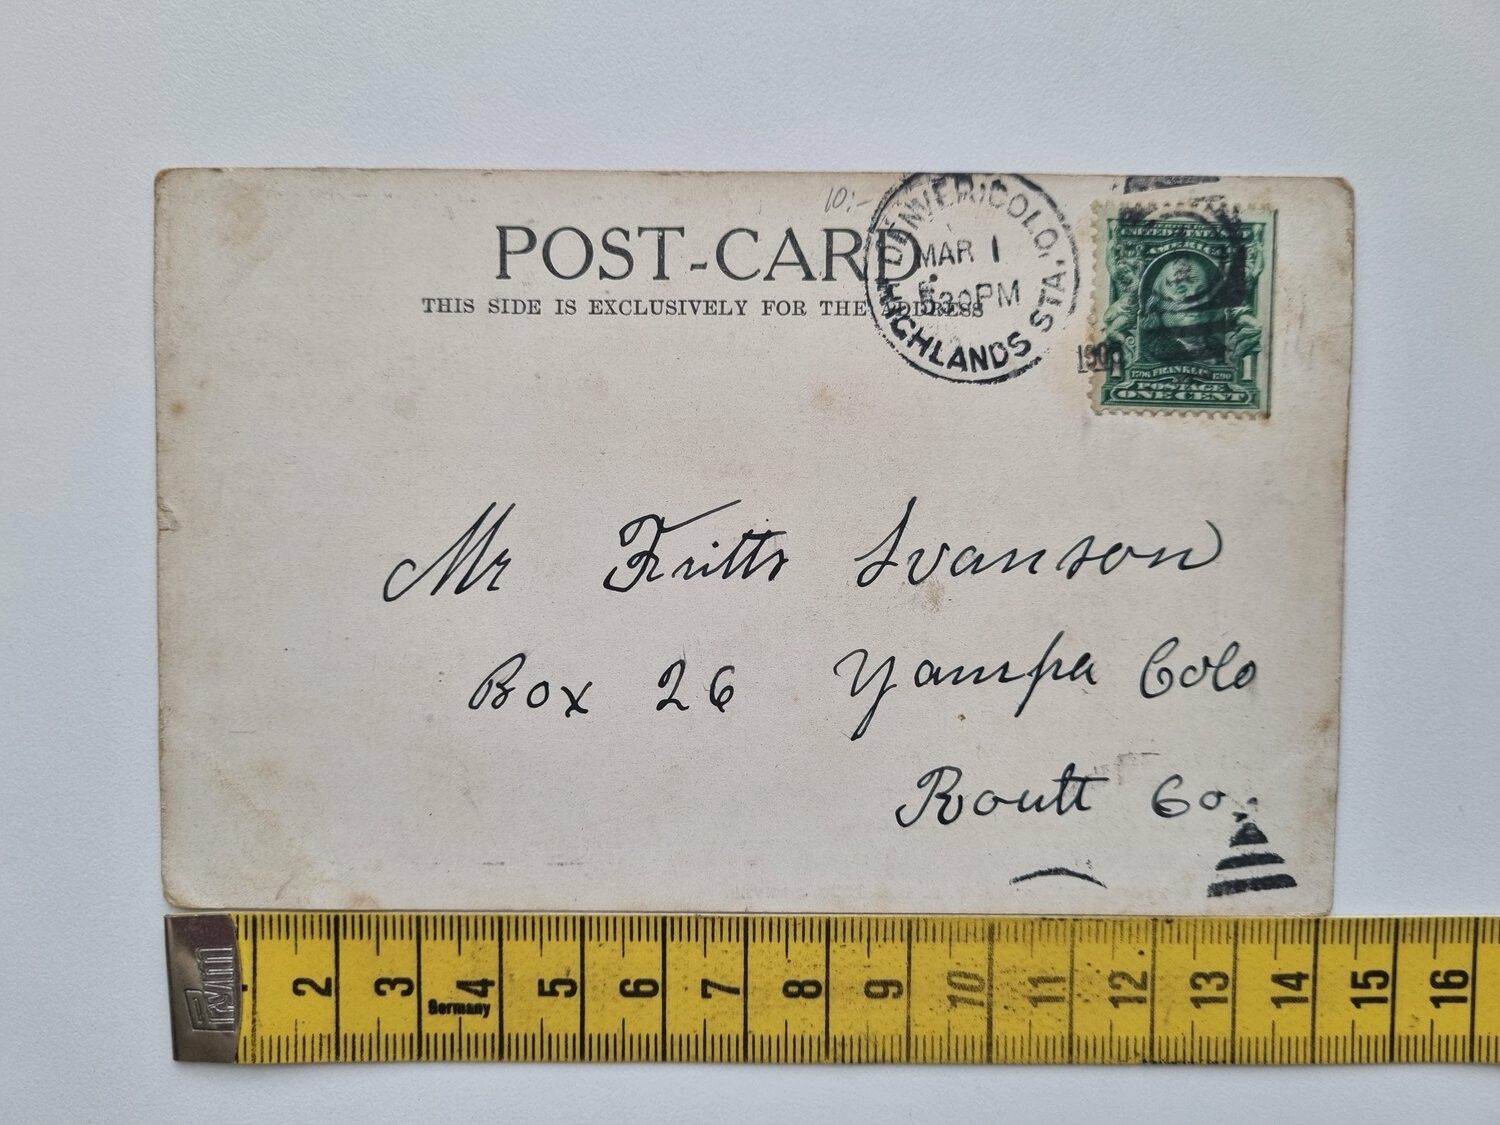 10:-
POST-CARD
THIS SIDE IS EXCLUSIVELY FOR THE ADDRESS
DENVER, COLO.
MAR 1
530PM
HIGHLANDS STA.
UNITED STATES
AMERICA
1 1
1706 FRANKLIN 1790
POSTAGE
ONE CENT
Mr Fritts Svanson
Box 26 Yampa Colo
Routt Co.
Prym
2 3 4 5 6 7 8 9 10 11 12 13 14 15 16
Germany